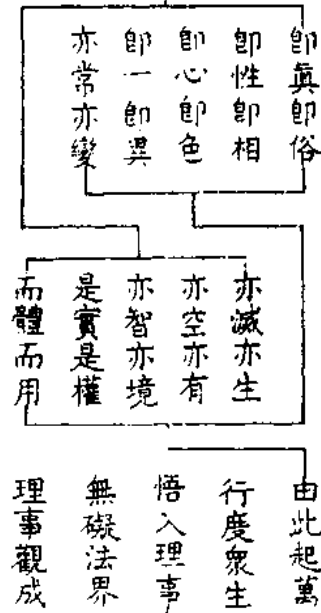 卽眞卽俗
卽性卽相
卽心卽色
卽一卽異
亦常亦變
亦滅亦生
亦空亦有
亦智亦境
是實是權
而體而用
由此起萬
行度衆生
悟入理事
無礙法界
理事觀成